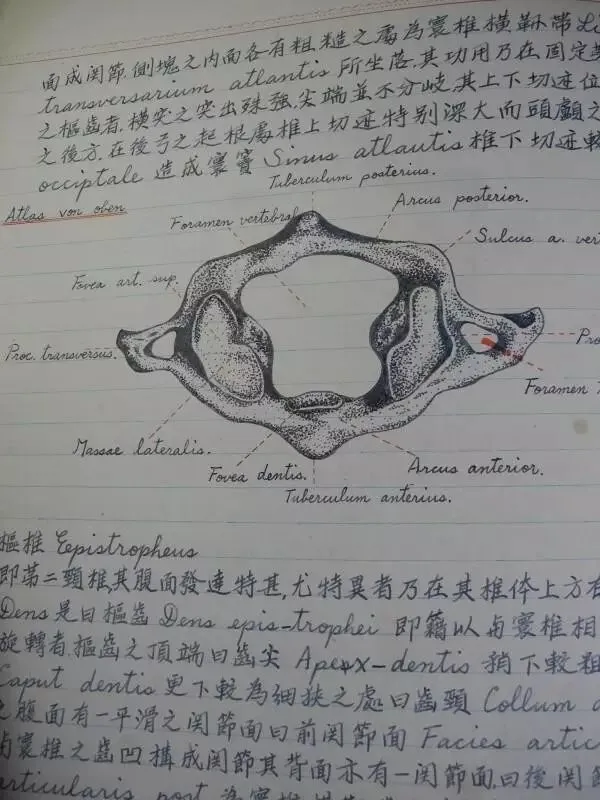 面成関節,側塊之内面各有粗糙之處為寰椎橫靱帶Li
transversarium atlantis 所坐落,其功用乃在固定
之樞齒者,橫突之突出殊強,尖端並不分岐,其上下切迹位
之後方,在後弓之起根處椎上切迹特别深大而頭顱之
occiptale 造成寰竇 Sinus atlantis 椎下切迹較
Tuberculum posterius.
Atlas von oben
Foramen vertebral
Arcus posterior.
Sulcus a. ver
Fovea art. sup.
Proc. transversus.
Pro
Foramen
Massae lateralis.
Fovea dentis.
Arcus anterior.
Tuberculum anterius.
樞椎 Eepistropheus
即第二頸椎,其腹面發達特甚,尤特異者乃在其椎体上方
Dens 是曰樞齒 Dens epis-trophei 即籍以与寰椎相
旋轉者,樞齒之頂端曰齒尖 Apex-dentis 稍下較粗
Caput dentis 更下較為細狹之處曰齒頸 Collum
之腹面有一平滑之関節面曰前関節面 Facies artic
与寰椎之齒凹搆成関節其背面亦有一関節面,曰後関節
articularis post